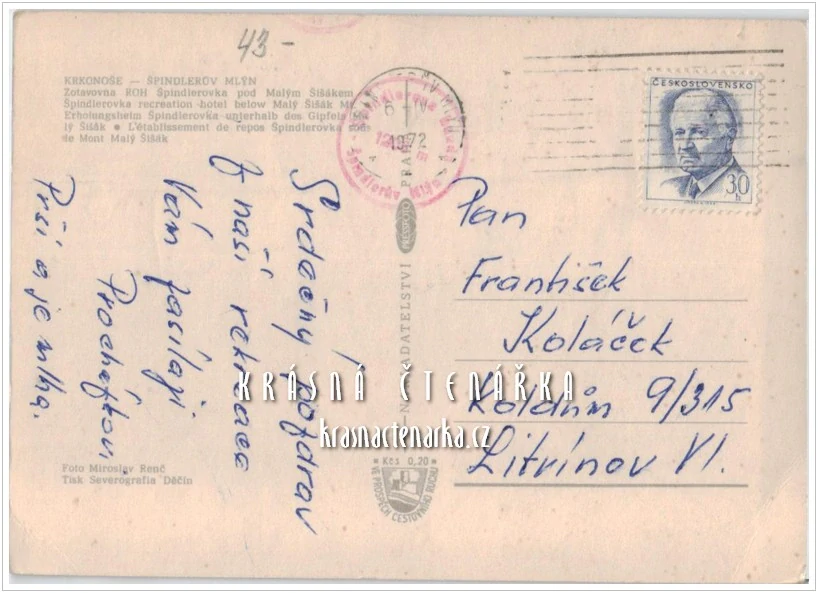 43-
KRKONOŠE — ŠPINDLERŮV MLÝN
Zotavovna ROH Špindlerovka pod Malým Šišákem
Špindlerovka recreation-hotel below Malý Šišák Mt.
Erholungsheim Špindlerovka unterhalb des Gipfels Ma-
lý Šišák • L'établissement de repos Špindlerovka sous
de Mont Malý Šišák
Srdečný pozdrav
z naší rekreace
Vám zasílají
Procházkovi.
Prší a je mlha.
Foto Miroslav Renč
Tisk Severografia Děčín
1972
Špindlerův Mlýn
NAKLADATELSTVÍ
PRESSFOTO
PRAHA
Kčs 0,20
VE PROSPĚCH CESTOVNÍHO RUCHU
ČESKOSLOVENSKO
30
h
Pan
František
Koláček
Koldům 9/315
Litvínov VI.
KRÁSNÁ ČTENÁŘKA
krasnactenarka.cz